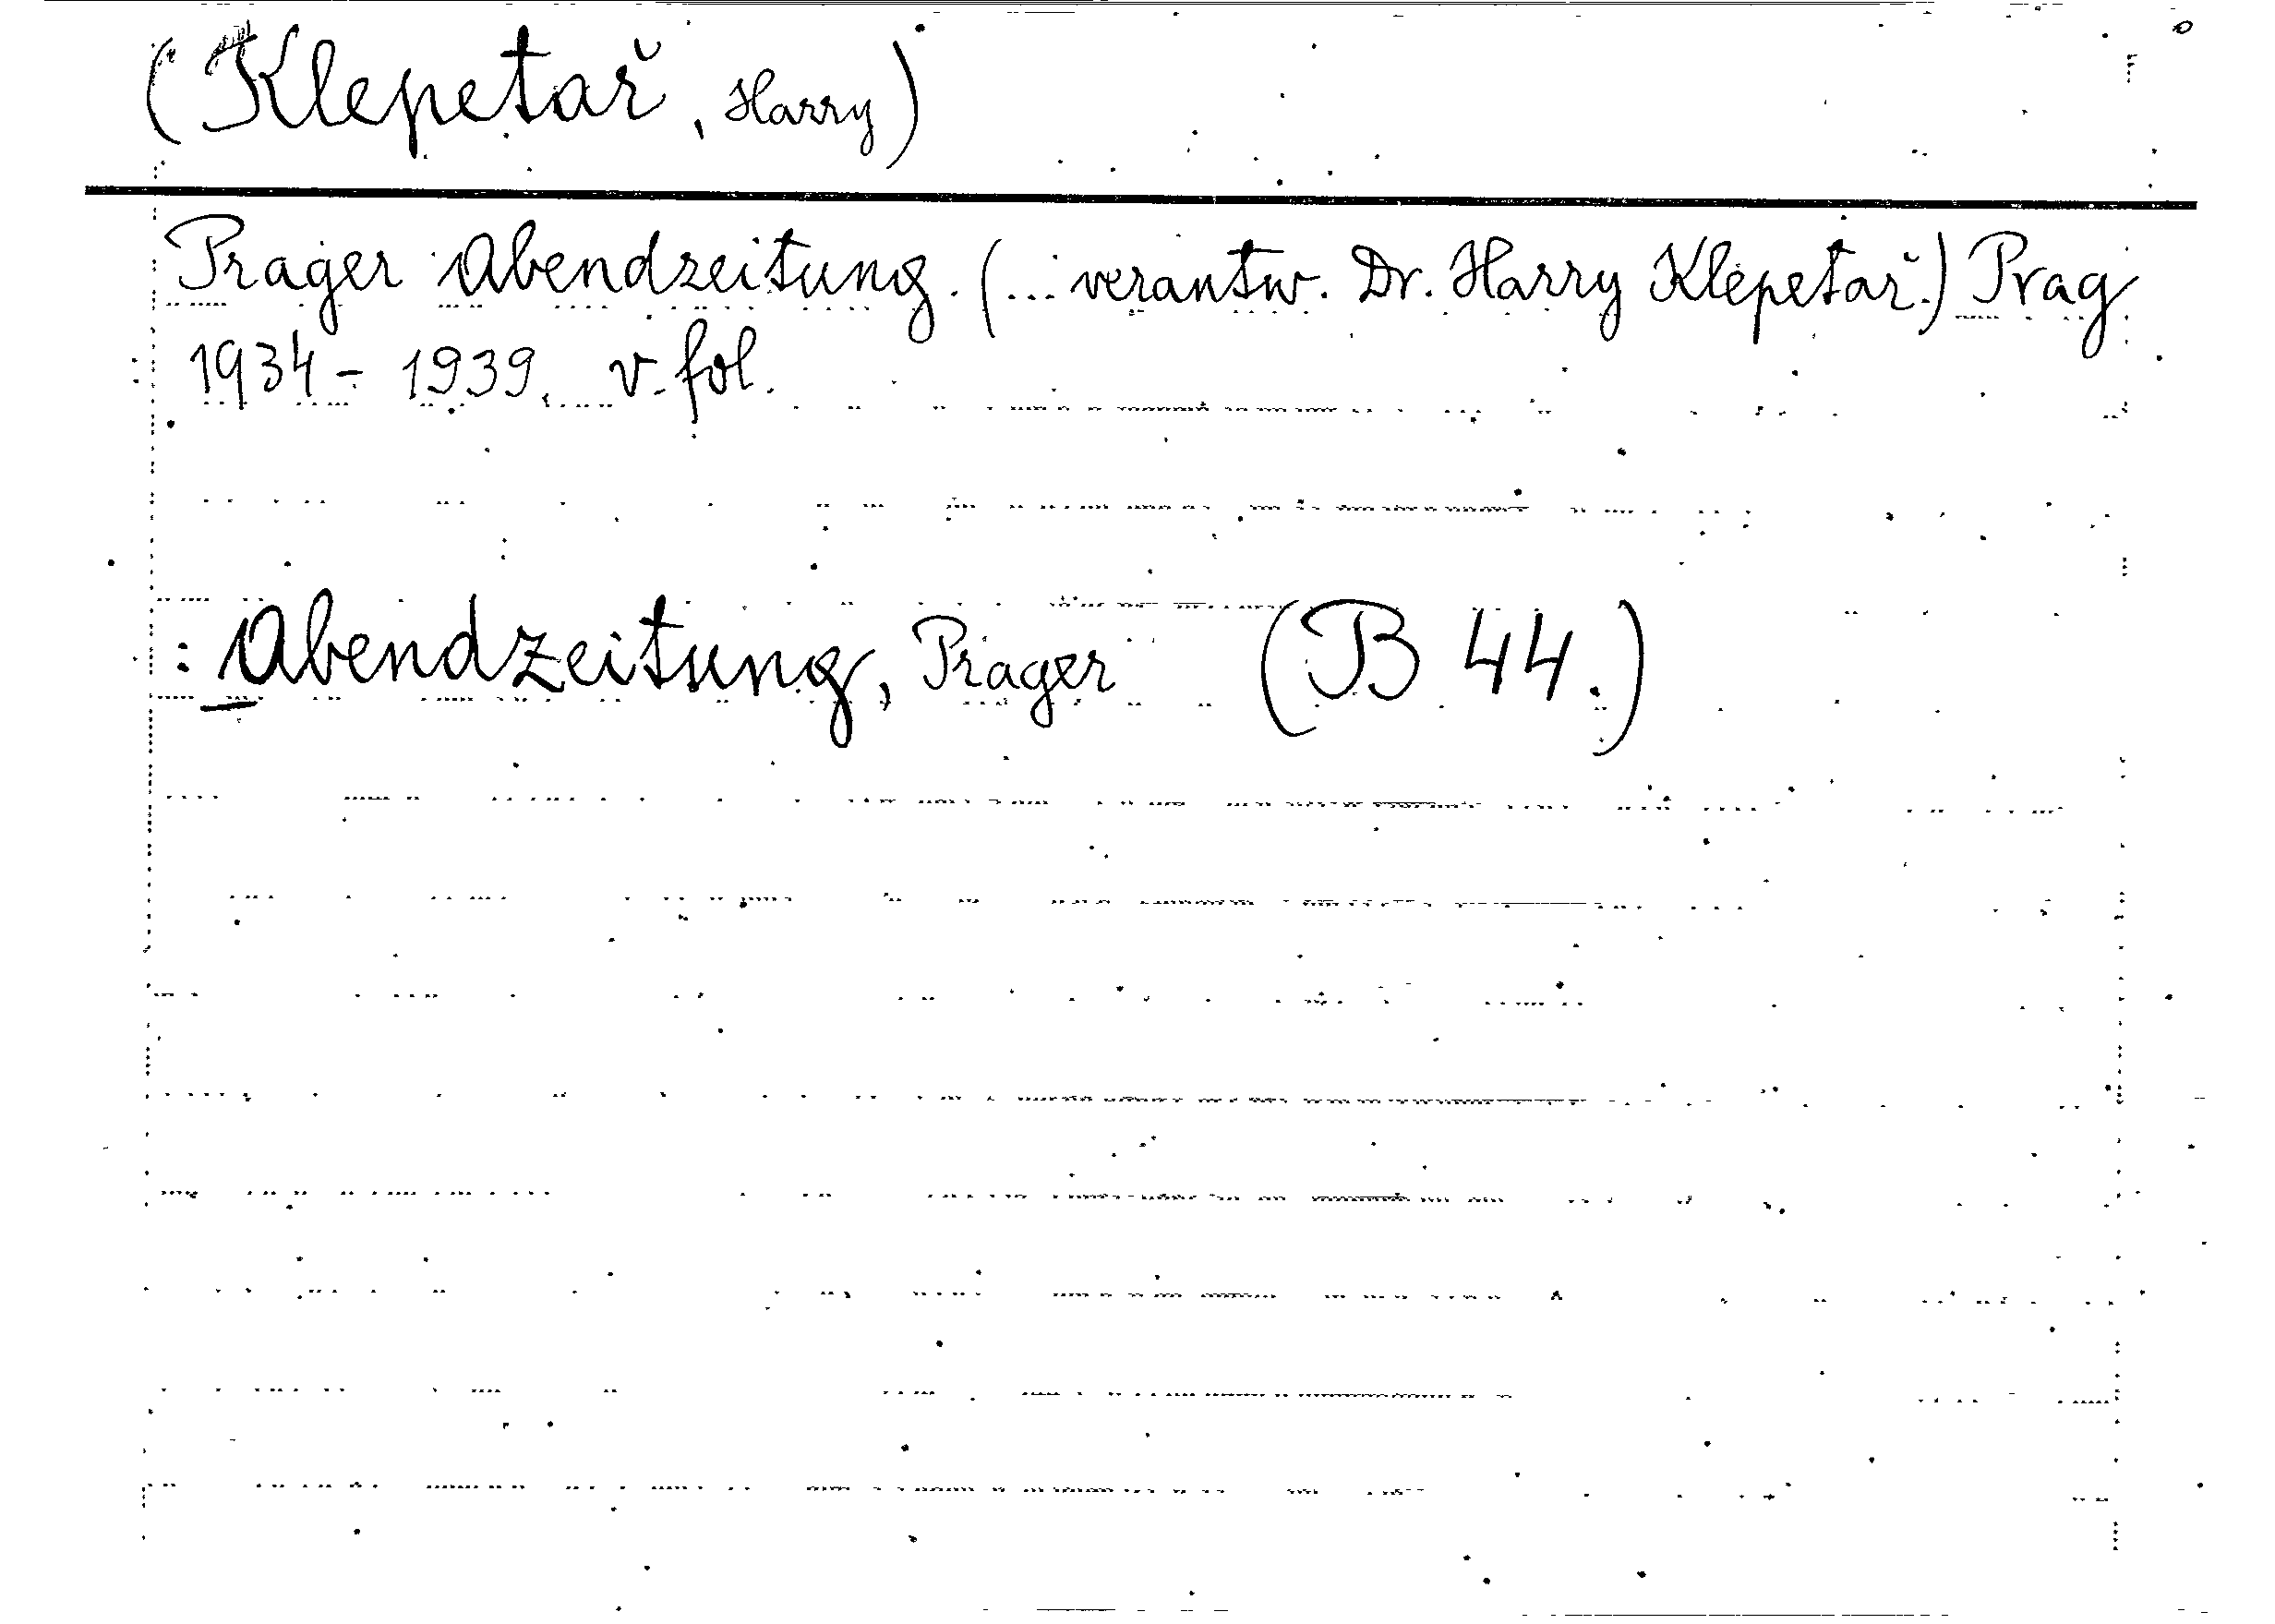 (Klepetař, Harry)
Prager Abendzeitung. (... verantw. Dr. Harry Klepetař.) Prag
1934 - 1939. v. fol.
: Abendzeitung, Prager (B 44.)